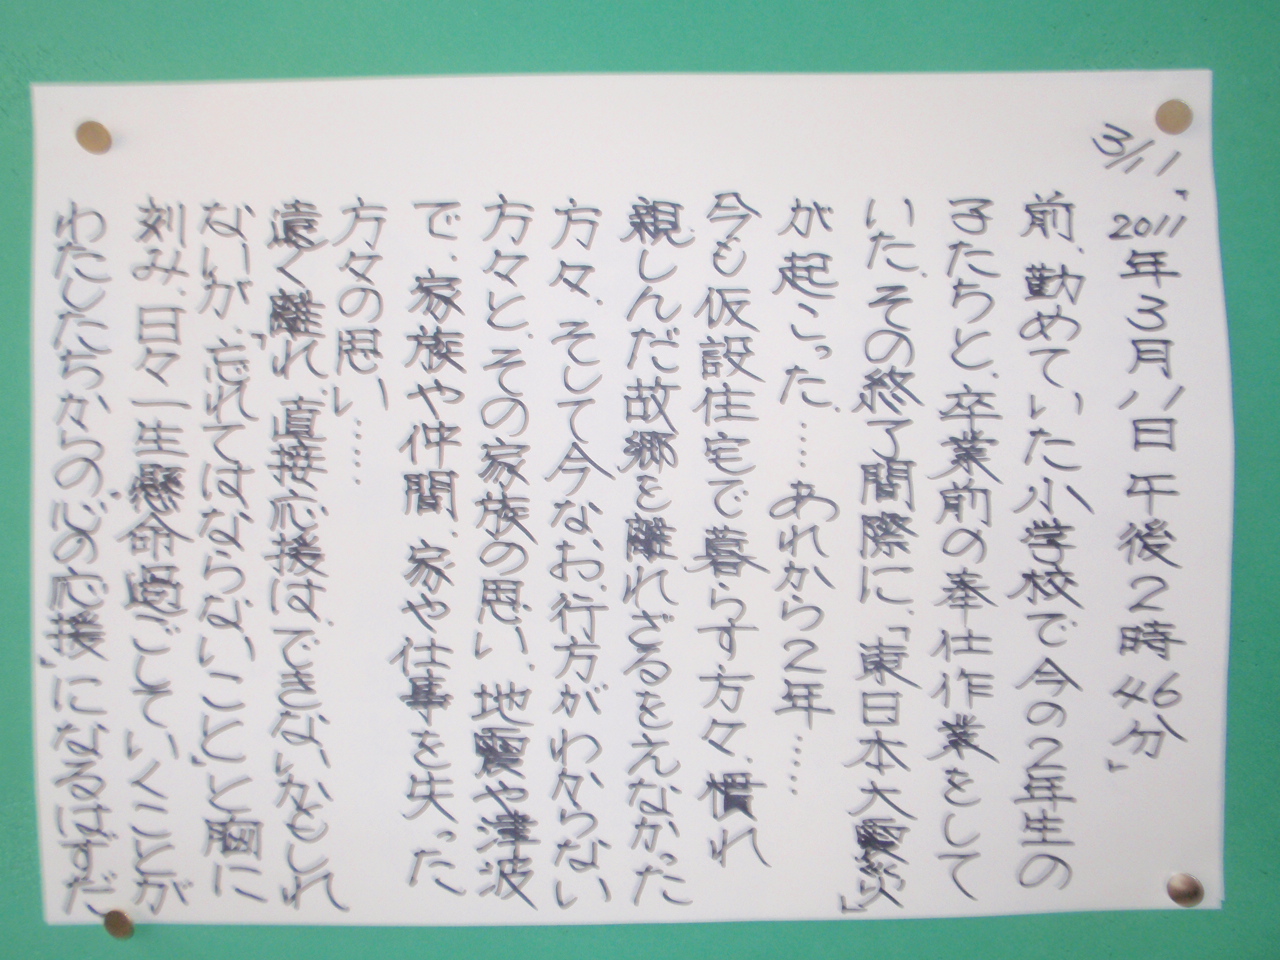 3/11
「2011年3月11日午後2時46分」
前、勤めていた小学校で今の2年生の
子たちと、卒業前の奉仕作業をして
いた。その終了間際に、「東日本大震災」
が起こった。……あれから2年……
今も仮設住宅で暮らす方々、慣れ
親しんだ故郷を離れざるをえなかった
方々、そして今なお、行方がわからない
方々と、その家族の思い、地震や津波
で、家族や仲間、家や仕事を失った
方々の思い……
遠く離れ、直接応援は、できないかもしれ
ないが、「忘れてはならないこと」と胸に
刻み、日々一生懸命過ごしていくことが
わたしたちからの「心の応援」になるはずだ